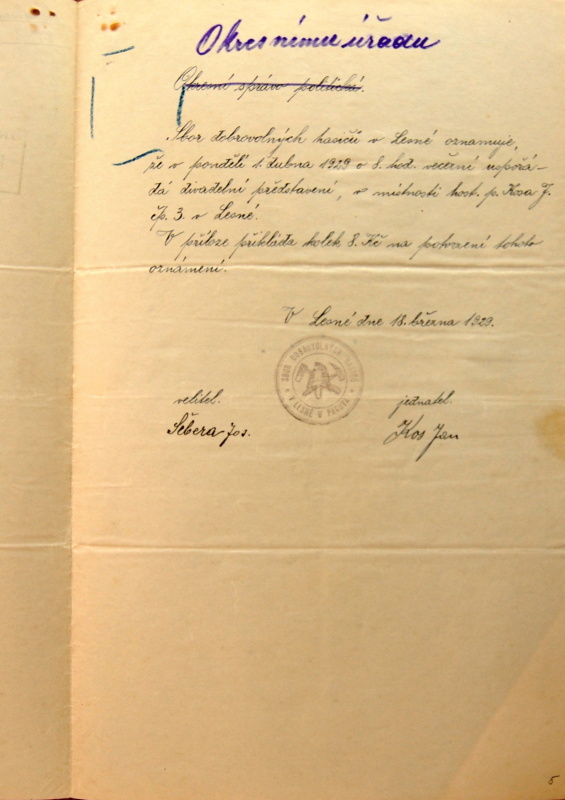 Okresnímu úřadu
Okresní správo politická.
Sbor dobrovolných hasičů v Lesné oznamuje,
že v pondělí 1. dubna 1929 o 8. hod. večerní uspořá-
dá divadelní představení, v místnosti host. p. Kosa J.
čp. 3. v Lesné.
V příloze přikládá kolek 8. Kč na potvrzení tohoto
oznámení.
V Lesné dne 18. března 1929.
SBOR DOBROVOLNÝCH HASIČŮ
V LESNÉ U
velitel. jednatel.
Šebera Jos. Kos Jan
5